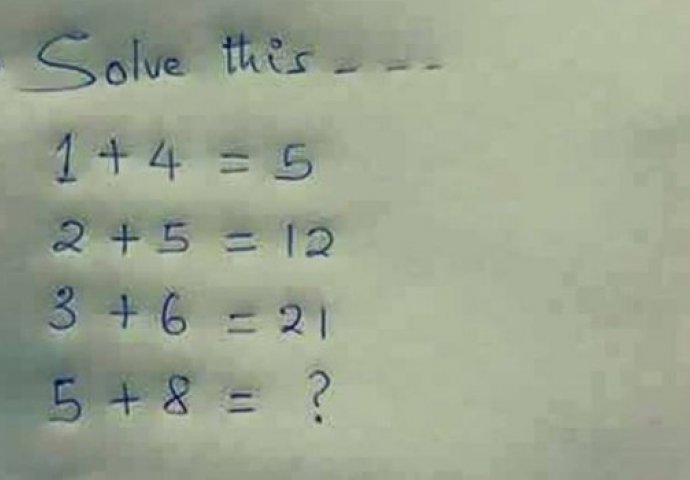 Solve this - - -
1 + 4 = 5
2 + 5 = 12
3 + 6 = 21
5 + 8 = ?